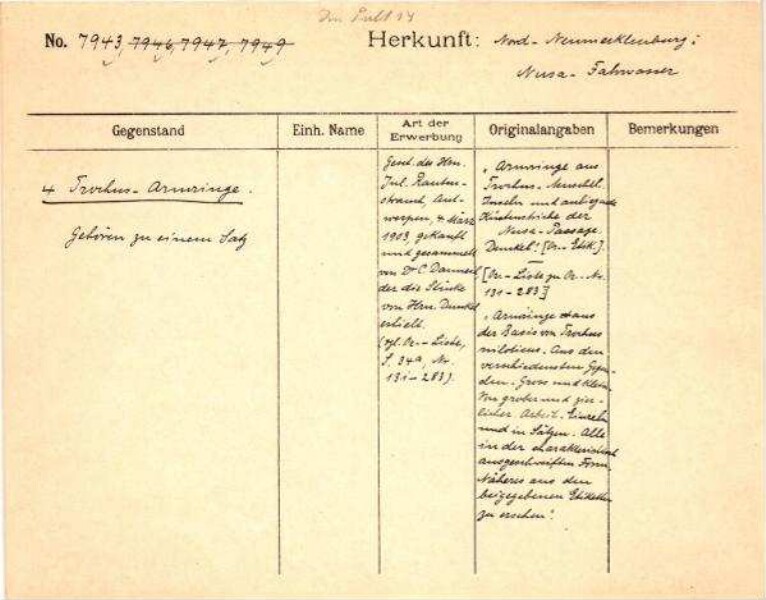 Im Pult 14
No. 7943, 7946, 7947, 7949
Herkunft: Nord-Neumecklenburg;
Nusa-Fahrwasser
Gegenstand
Einh. Name
Art der
Erwerbung
Originalangaben
Bemerkungen
4 Trochus-Armringe.
Gehören zu einem Satz
Gesch. des Hrn.
Jul. Rauten-
strauch, Ant-
werpen, 4. März
1903, gekauft
und gesammelt
von Dr C. Danneil
der die Stücke
von Hrn. Dunkel
erhielt.
(vgl. Or.-Liste,
S. 34a, Nr.
131-283).
"Armringe aus
Trochus-Muschel.
Inseln und anliegende
Küstenstriche der
Nusa-Passage.
Dunkel". [Or.-Etik.].
[Or.-Liste zu Or.-Nr.
131-283]
"Armringe aus
der Basis von Trochus
niloticus. Aus den
verschiedensten Gegen-
den. Gross und klein.
Von grober und zier-
licher Arbeit. Einzeln
und in Sätzen. Alle
in der charakteristisch
ausgeschweiften Form.
Näheres aus den
beigegebenen Etiketten
zu ersehen".